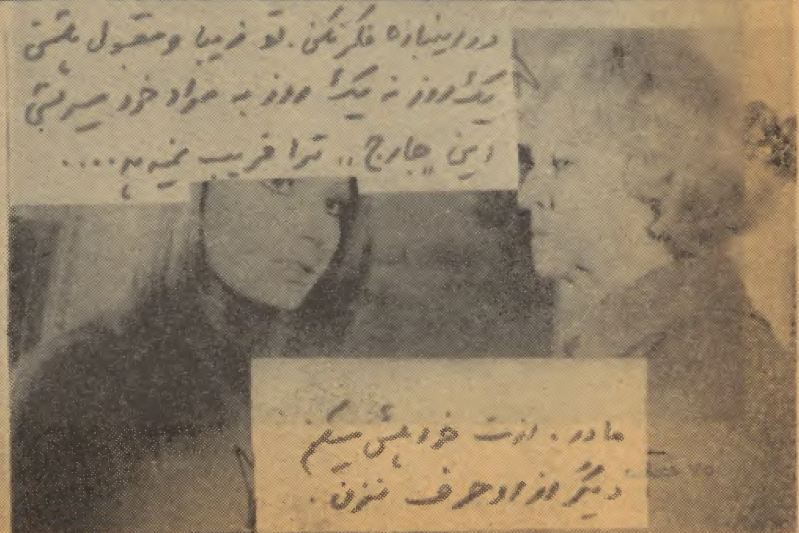 در اینباره فکر نکن. تو زیبا و مقبول هستی
یک روز نه یک روز به مراد خود میرسی
این "جارج" ترا فریب میدهد....
مادر. ازت خواهش میکنم
دیگر از او حرف نزن.